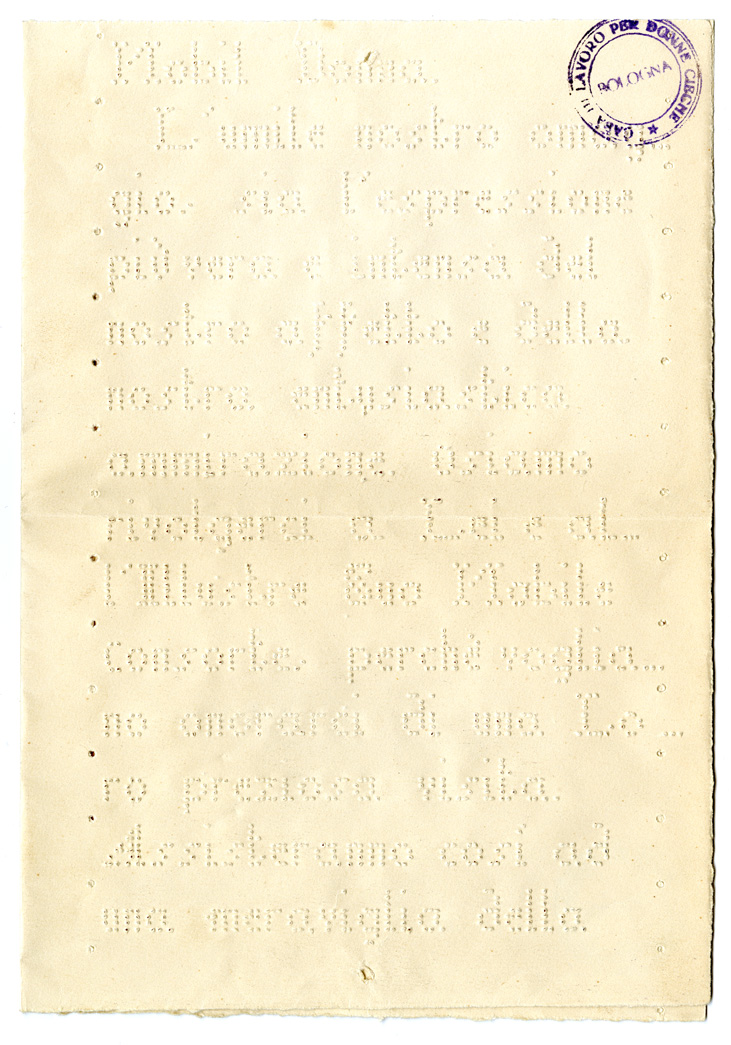 CASA DI LAVORO PER DONNE CIECHE
BOLOGNA
Nobil Donna.
L'umile nostro omag_
gio, sia l'espressione
più vera e intensa del
nostro affetto e della
nostra entusiastica
ammirazione. Osiamo
rivolgerci a Lei e al_
l'Illustre Suo Nobile
Consorte, perché voglia_
no onorarci di una Lo_
ro preziosa visita.
Assisteranno così ad
una meraviglia della